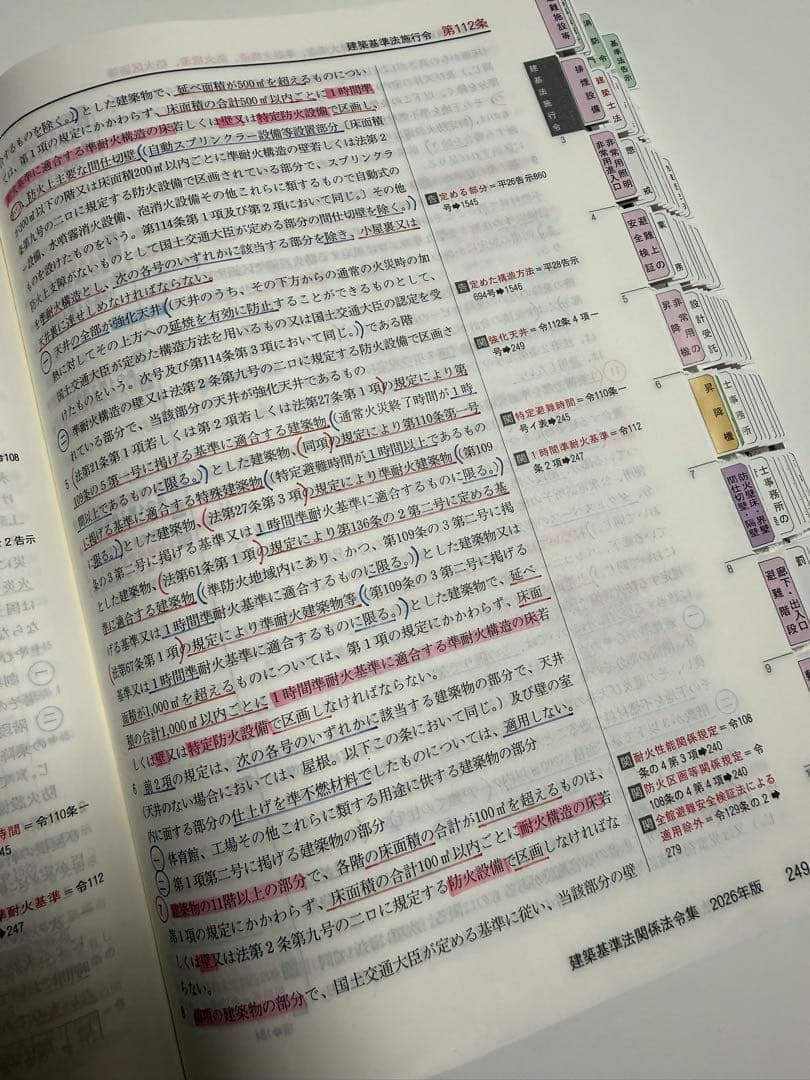 建築基準法施行令　第112条
するものを除く。）とした建築物で、延べ面積が500㎡を超えるものについ
ては、第１項の規定にかかわらず、床面積の合計500㎡以内ごとに１時間準
耐火基準に適合する準耐火構造の床若しくは壁又は特定防火設備で区画し、
防火上主要な間仕切壁（自動スプリンクラー設備等設置部分（床面積
が200㎡以下の階又は床面積200㎡以内ごとに準耐火構造の壁若しくは法第２
条第九号の二ロに規定する防火設備で区画されている部分で、スプリンクラ
ー設備、水噴霧消火設備、泡消火設備その他これらに類するもので自動式の
ものを設けたものをいう。第114条第１項及び第２項において同じ。）その他
防火上支障がないものとして国土交通大臣が定める部分の間仕切壁を除く。）
を準耐火構造とし、次の各号のいずれかに該当する部分を除き、小屋裏又は
天井裏に達せしめなければならない。
一　天井の全部が強化天井（天井のうち、その下方からの通常の火災時の加
熱に対してその上方への延焼を有効に防止することができるものとして、
国土交通大臣が定めた構造方法を用いるもの又は国土交通大臣の認定を受
けたものをいう。次号及び第114条第３項において同じ。）である階
二　準耐火構造の壁又は法第２条第九号の二ロに規定する防火設備で区画さ
れている部分で、当該部分の天井が強化天井であるもの
５　法第21条第１項若しくは第２項若しくは法第27条第１項の規定により第
109条の５第一号に掲げる基準に適合する建築物（通常火災終了時間が１時
間以上であるものに限る。）とした建築物、同項の規定により第110条第一号
に掲げる基準に適合する特殊建築物（特定避難時間が１時間以上であるもの
に限る。）とした建築物、法第27条第３項の規定により準耐火建築物（第109
条の３第二号に掲げる基準又は１時間準耐火基準に適合するものに限る。）
とした建築物、法第61条第１項の規定により第136条の２第二号に定める基
準に適合する建築物（準防火地域内にあり、かつ、第109条の３第二号に掲
げる基準又は１時間準耐火基準に適合するものに限る。）とした建築物又は
法第67条第１項の規定により準耐火建築物等（第109条の３第二号に掲げる
基準又は１時間準耐火基準に適合するものに限る。）とした建築物で、延べ
面積が1,000㎡を超えるものについては、第１項の規定にかかわらず、床面
積の合計1,000㎡以内ごとに１時間準耐火基準に適合する準耐火構造の床若
しくは壁又は特定防火設備で区画しなければならない。
６　前２項の規定は、次の各号のいずれかに該当する建築物の部分で、天井
（天井のない場合においては、屋根。以下この条において同じ。）及び壁の室
内に面する部分の仕上げを準不燃材料でしたものについては、適用しない。
一　体育館、工場その他これらに類する用途に供する建築物の部分
二　第１項第二号に掲げる建築物の部分
７　建築物の11階以上の部分で、各階の床面積の合計が100㎡を超えるものは、
第１項の規定にかかわらず、床面積の合計100㎡以内ごとに耐火構造の床若
しくは壁又は法第２条第九号の二ロに規定する防火設備で区画しなければな
らない。
８　前項の建築物の部分で、国土交通大臣が定める基準に従い、当該部分の壁
定める部分＝平26告示860
号➡1545
定めた構造方法＝平28告示
694号➡1546
関 強化天井＝令112条４項一
号➡249
関 特定避難時間＝令110条一
号イ表➡245
関 １時間準耐火基準＝令112
条２項➡247
関 耐火性能関係規定＝令108
条の４第３項➡240
関 防火区画等関係規定＝令
108条の４第４項➡240
関 全館避難安全検証法による
適用除外＝令129条の２➡
279
建築基準法関係法令集　2026年版　249
建基法施行令
排煙設備
建築士法
消防令
基準法告示
非常用照明
非常用進入口
懲戒
避難上の安全検証
業務
非常用の昇降機
設計受託
昇降機
士事務所
防火壁床・界壁
間仕切壁・隔壁
士事務所の
廊下・出入口
避難階
罰
3
4
5
6
7
8
9
令108
２告示
時間＝令110条一
45
準耐火基準＝令112
➡247